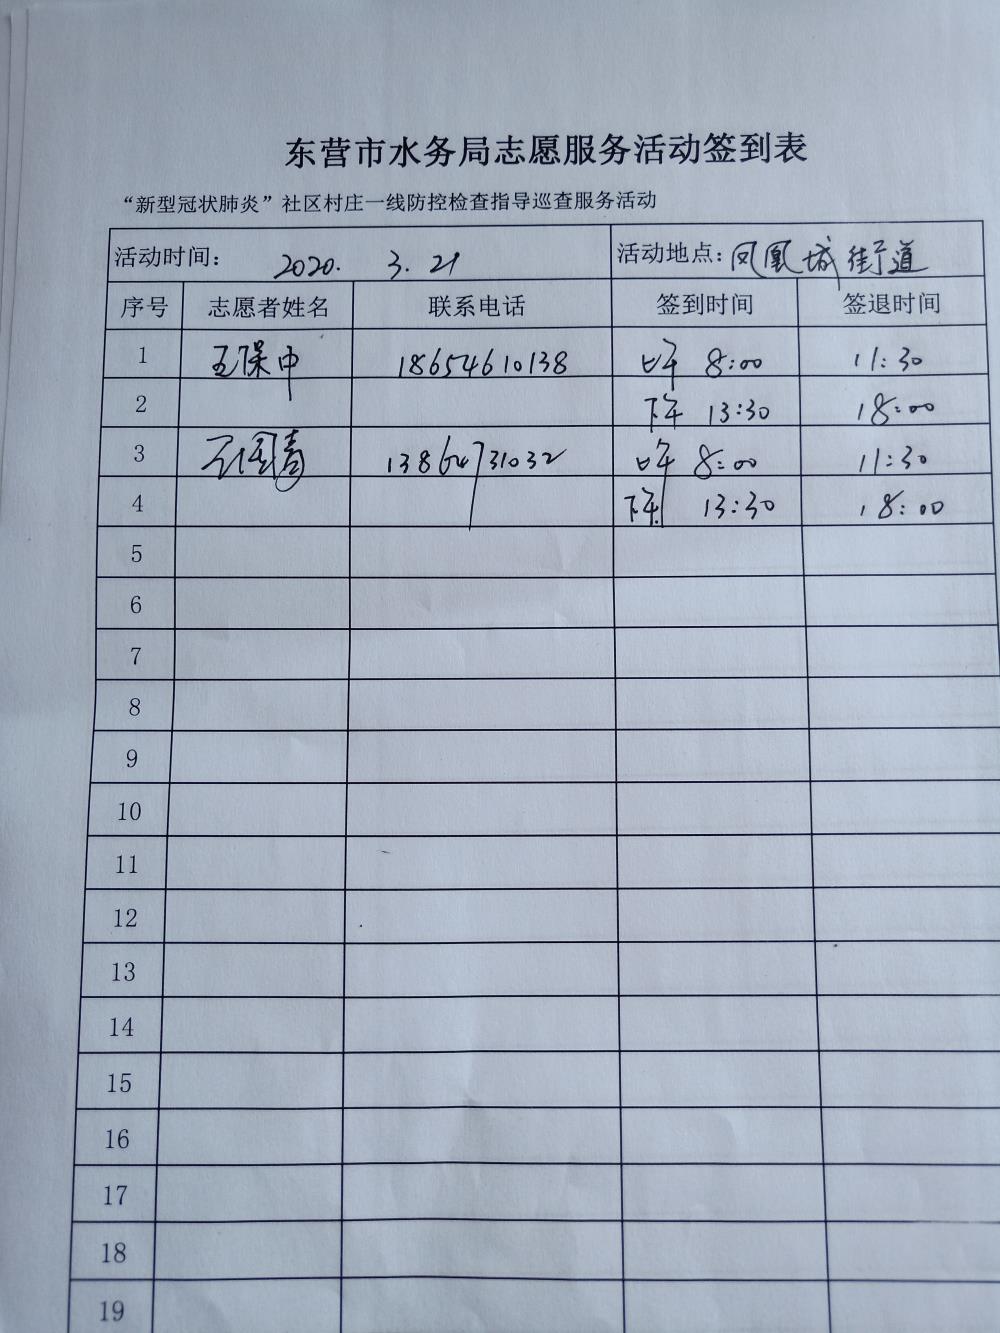 东营市水务局志愿服务活动签到表
“新型冠状肺炎”社区村庄一线防控检查指导巡查服务活动
活动时间： 2020. 3. 21 活动地点：凤凰城街道
序号 志愿者姓名 联系电话 签到时间 签退时间
1 王保中 18654610138 上午 8:00 11:30
2 下午 13:30 18:00
3 13864731032 上午 8:00 11:30
4 下午 13:30 18:00
5
6
7
8
9
10
11
12
13
14
15
16
17
18
19